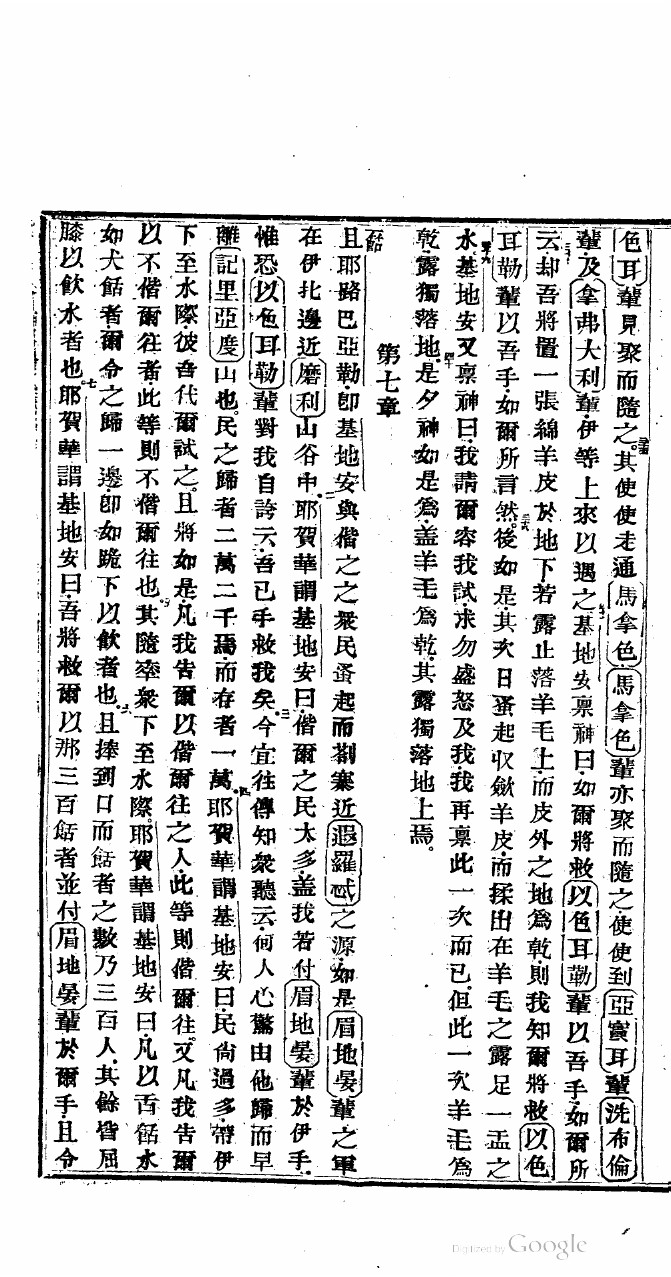 色耳輩見聚而隨之。其使使走通馬拿色馬拿色輩亦聚而隨之使使到亞寘耳輩洗布倫
輩及拿弗大利輩伊等上來以遇之基地安禀神曰如爾將救以色耳勒輩以吾手如爾所
云却吾將置一張綿羊皮於地下若露止落羊毛上而皮外之地為乾則我知爾將救以色
耳勒輩以吾手如爾所言然。後如是其次日蚤起收斂羊皮而揉出在羊毛之露足一盂之
水基地安又禀神曰我請爾容我試求勿盛怒及我我再禀此一次而已但此一次羊毛為
乾露獨落地是夕神如是為盖羊毛為乾其露獨落地上焉。
第七章
且耶路巴亞勒即基地安與偕之之衆民蚤起而劄寨近遐羅忒之源如是眉地晏輩之軍
在伊北邊近磨利山谷中耶賀華謂基地安曰偕爾之民太多盖我若付眉地晏輩於伊手
惟恐以色耳勒輩對我自誇云吾已手救我矣今宜往傳知衆聽云何人心驚由他歸而早
離記里亞度山也民之歸者二萬二千焉而存者一萬耶賀華謂基地安曰民尚過多帶伊
下至水際彼吾代爾試之且將如是凡我告爾以偕爾往之人此等則偕爾往又凡我告爾
以不偕爾往者此等則不偕爾往也其隨率衆下至水際耶賀華謂基地安曰凡以舌餂水
如犬餂者爾令之歸一邊即如跪下以飲者也且捧到口而餂者之數乃三百人其餘皆屈
膝以飲水者也耶賀華謂基地安曰吾將救爾以那三百餂者並付眉地晏輩於爾手且令
Digitized by Google